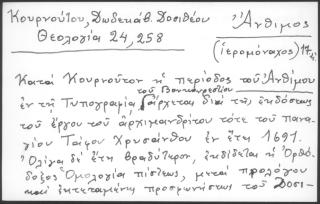 Κουρνούτου, Δωδεκάβ. Δοσιθέου
Θεολογία 24, 258
Ἄνθιμος
(ἱερομόναχος)
Κατά Κουρνοῦτον ἡ περίοδος τοῦ Ἀνθίμου
ἐν τῇ Τυπογραφίᾳ τοῦ Βουκουρεστίου ἄρχεται διά τῆς ἐκδόσεως
τοῦ ἔργου τοῦ ἀρχιμανδρίτου τότε τοῦ πανα-
γίου Τάφου Χρυσάνθου ἐν ἔτει 1691.
Ὀλίγα δέ ἔτη βραδύτερον, ἐκδίδεται ἡ Ὀρθό-
δοξος Ὁμολογία πίστεως, μετά προλόγου
καί ἐκτεταμένης προσφωνήσεως τοῦ Δοσι-